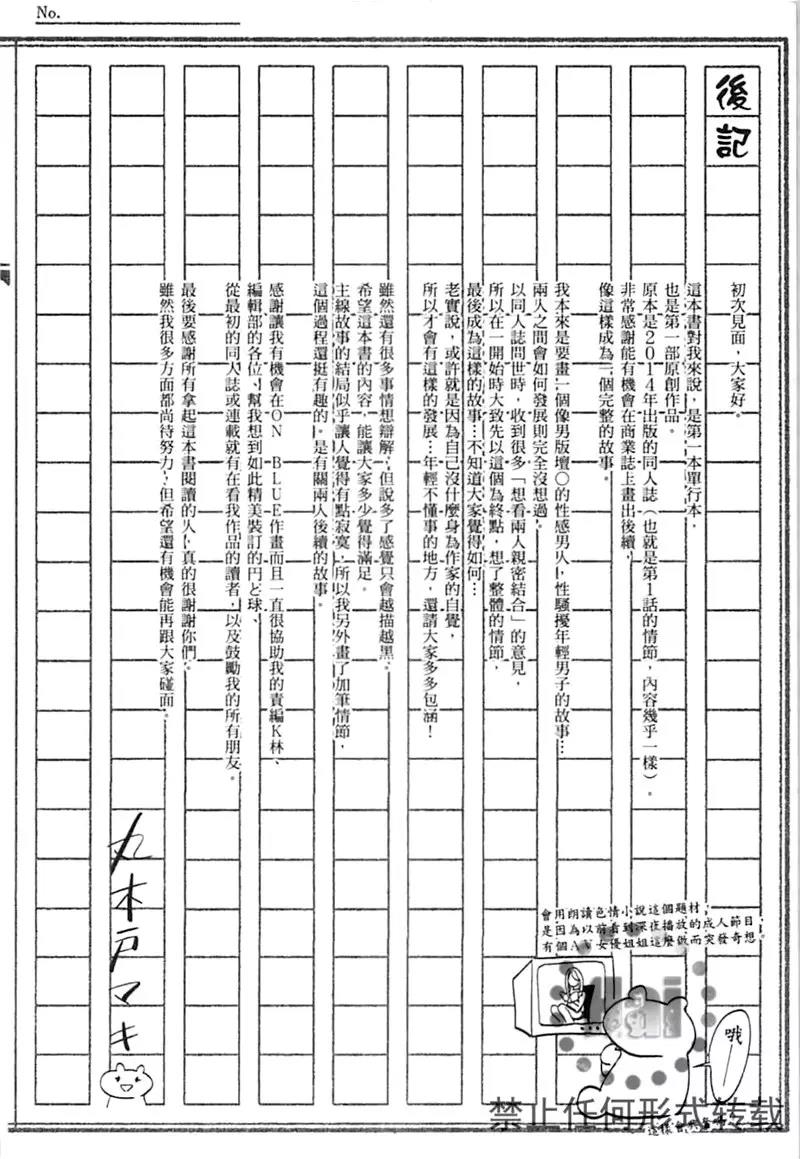 No.
後記
初次見面，大家好。
這本書對我來說，是第一本單行本，
也是第一部原創作品。
原本是2014年出版的同人誌（也就是第1話的情節，內容幾乎一樣）。
非常感謝能有機會在商業誌上畫出後續，
像這樣成為一個完整的故事。
我本來是要畫一個像男版壇〇的性感男人，性騷擾年輕男子的故事…
兩人之間會如何發展則完全沒想過。
以同人誌問世時，收到很多「想看兩人親密結合」的意見，
所以在一開始時大致先以這個為終點，想了整體的情節，
最後成為這樣的故事…不知道大家覺得如何…
老實說，或許就是因為自己沒什麼身為作家的自覺，
所以才會有這樣的發展…年輕不懂事的地方，還請大家多多包涵！
雖然還有很多事情想辯解，但說多了感覺只會越描越黑。
希望這本書的內容，能讓大家多少覺得滿足。
主線故事的結局似乎讓人覺得有點寂寞，所以我另外畫了加筆情節，
這個過程還挺有趣的。是有關兩人後續的故事。
感謝讓我有機會在ON BLUE作畫而且一直很協助我的責編K林、
編輯部的各位、幫我想到如此精美裝訂的円と球、
從最初的同人誌或連載就有在看我作品的讀者，以及鼓勵我的所有朋友。
最後要感謝所有拿起這本書閱讀的人，真的很謝謝你們。
雖然我很多方面都尚待努力，但希望還有機會能再跟大家碰面。
丸木戸マキ
會用朗讀色情小說這個題材
是因為以前看到深夜播放的成人節目
有個AV女優姐姐這麼做而突發奇想
哦
禁止任何形式转载